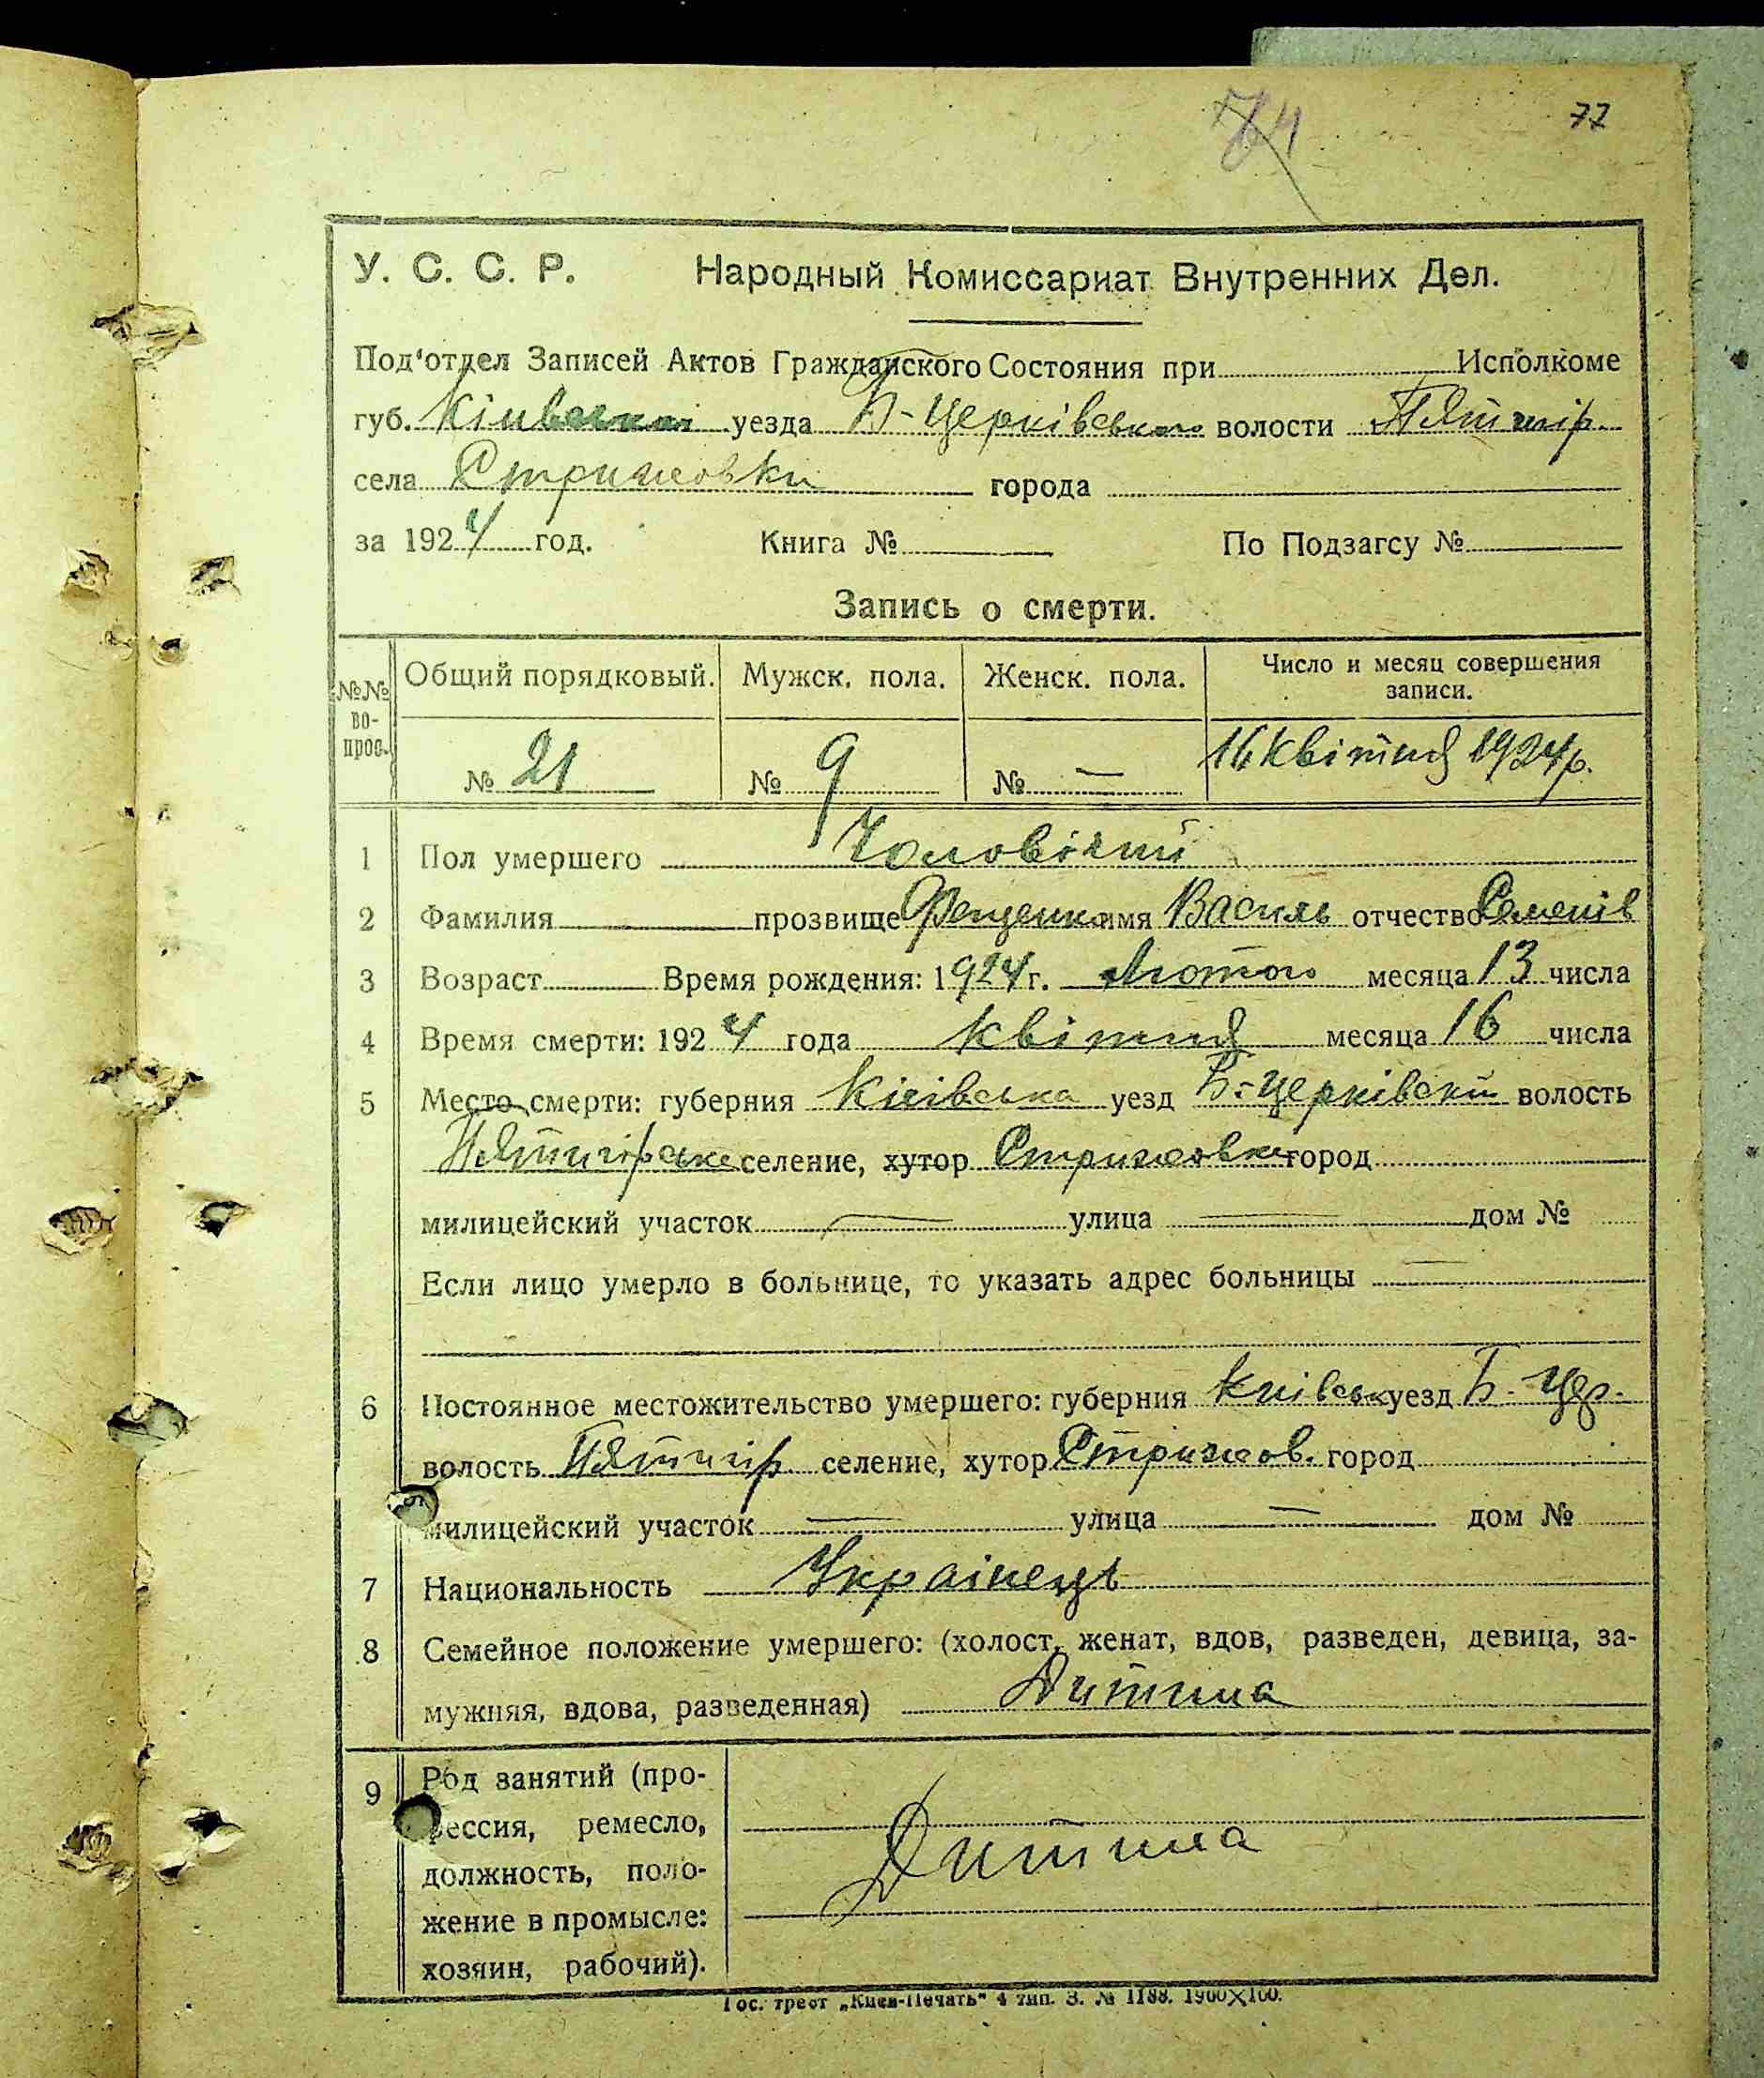 77
У. С. С. Р. Народный Комиссариат Внутренних Дел.
Под'отдел Записей Актов Гражданского Состояния при Исполкоме
губ. Київської уезда Б-Церківського волости П'ятигір.
села Стрижовки города
за 1924 год. Книга № По Подзагсу №
Запись о смерти.
№№ во-прос. Общий порядковый. Мужск. пола. Женск. пола. Число и месяц совершения записи.
№ 21 № 9 № — 16 квітня 1924 р.
1 Пол умершего Чоловічий
2 Фамилия прозвище Фещенко имя Василь отчество Семенів
3 Возраст Время рождения: 1924 г. Лютого месяца 13 числа
4 Время смерти: 1924 года квітня месяца 16 числа
5 Место смерти: губерния Київська уезд Б.-Церківський волость
П'ятигірське селение, хутор Стрижовка город
милицейский участок — улица — дом №
Если лицо умерло в больнице, то указать адрес больницы —
6 Постоянное местожительство умершего: губерния Київськ уезд Б.-Цер.
волость П'ятигір. селение, хутор Стрижов. город
милицейский участок — улица — дом №
7 Национальность Українець
8 Семейное положение умершего: (холост, женат, вдов, разведен, девица, за-
мужняя, вдова, разведенная) Дитина
9 Род занятий (про-
фессия, ремесло,
должность, поло-
жение в промысле:
хозяин, рабочий).
Дитина
Гос. трест „Киев-Печать" 4 тип. З. № 1188. 1900×100.